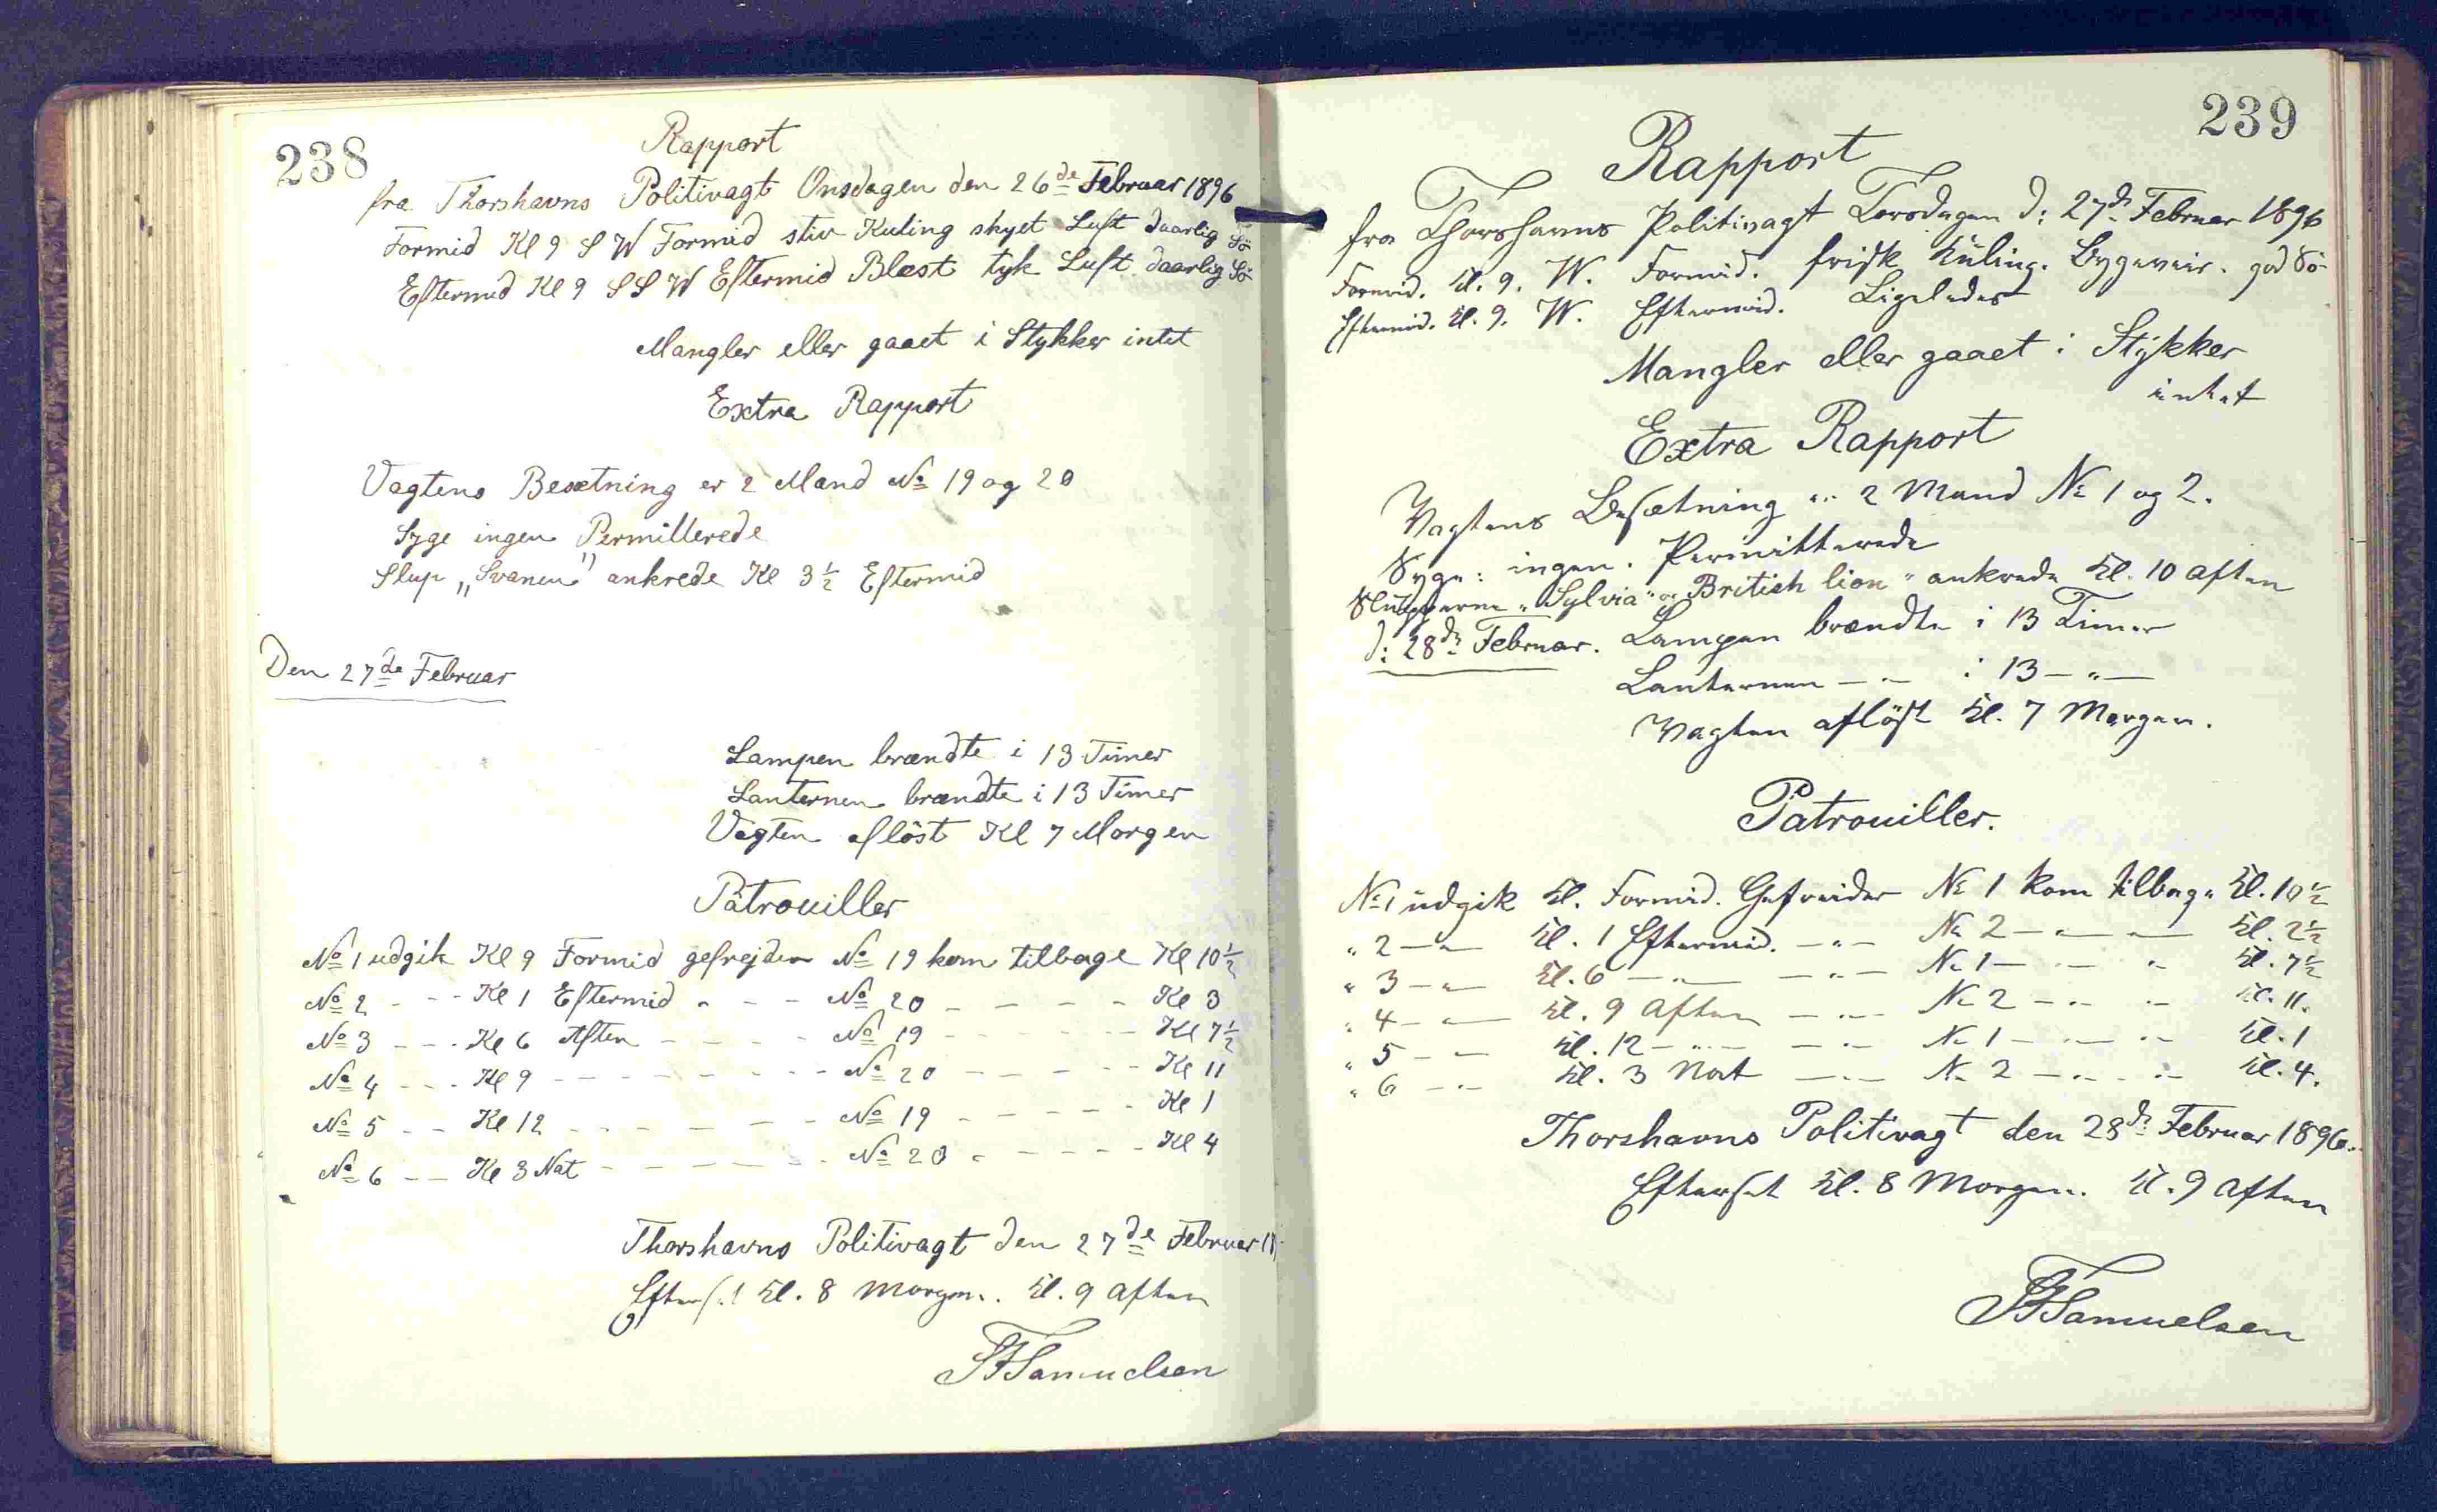 238
Rapport
fra Thorshavns Politivagt Onsdagen den 26de Februar 1896
Formid Kl 9 S W Formid stiv Kuling skyet Luft daarlig Sö
Eftermid Kl 9 S S W Eftermid Blæst tyk Luft daarlig Sö
Mangler eller gaaet i Stykker intet
Extra Rapport
Vagtens Besætning er 2 Mand No 19 og 20
Syge ingen Permitterede
Slup „Svanen" ankrede Kl 3½ Eftermid
Den 27de Februar
Lampen brændte i 13 Timer
Lanternen brændte i 13 Timer
Vagten aflöst Kl 7 Morgen
Patrouiller
No 1 udgik Kl 9 Formid gefrejder No 19 kom tilbage Kl 10½
No 2 - - - Kl 1 Eftermid - - - No 20 - - - - Kl 3
No 3 - - - Kl 6 Aften - - - - No 19 - - - - - Kl 7½
No 4 - - - Kl 9 - - - - - - - - No 20 - - - - - Kl 11
No 5 - - Kl 12 - - - - - - - No 19 - - - - - Kl 1
No 6 - - Kl 3 Nat - - - - - - No 20 - - - - - Kl 4
Thorshavns Politivagt den 27de Februar
Efterset Kl. 8 Morgen. Kl. 9 Aften
Samuelsen
239
Rapport
fra Thorshavns Politivagt Torsdagen d: 27de Februar 1896
Formid. Kl. 9. W. Formid. frisk Kuling. Bygeveir. god Sö
Eftermid. Kl. 9. W. Eftermid. Ligeledes
Mangler eller gaaet i Stykker
intet
Extra Rapport
Vagtens Besætning er 2 Mand No 1 og 2.
Syge: ingen. Permitterede
Slupperne „Sylvia" og „British lion" ankrede Kl. 10 Aften
d: 28de Februar. Lampen brændte i 13 Timer
Lanternen — " — i 13 — " —
Vagten aflöst Kl. 7 Morgen.
Patrouiller.
No 1 udgik Kl. Formid. Gefreider No 1 kom tilbage Kl. 10½
" 2 — " — Kl. 1 Eftermid. — " — No 2 — " — — Kl. 2½
" 3 — " — Kl. 6 — " — — " — No 1 — " — " Kl. 7½
" 4 — " — Kl. 9 Aften — " — No 2 — " — " — Kl. 11.
" 5 — " — Kl. 12 — " — — " — No 1 — " — " — Kl. 1
" 6 — " — Kl. 3 Nat — " — No 2 — " — " — Kl. 4.
Thorshavns Politivagt den 28de Februar 1896.
Efterset Kl. 8 Morgen. Kl. 9 Aften
Samuelsen